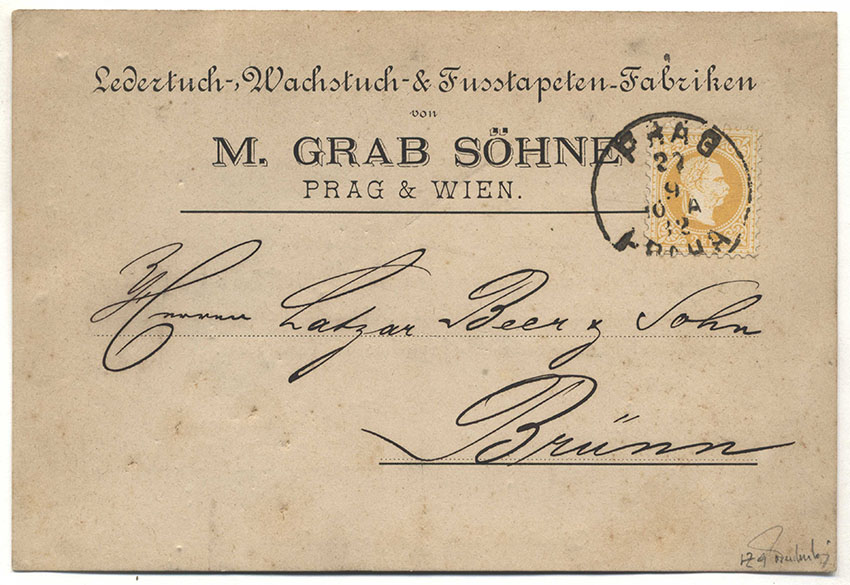 Ledertuch-, Wachstuch- & Fusstapeten-Fabriken
von
M. GRAB SÖHNE
PRAG & WIEN.
PRAG
27
9
10 A
82
PRAHA
Herren Latzar Beer & Sohn
Brünn